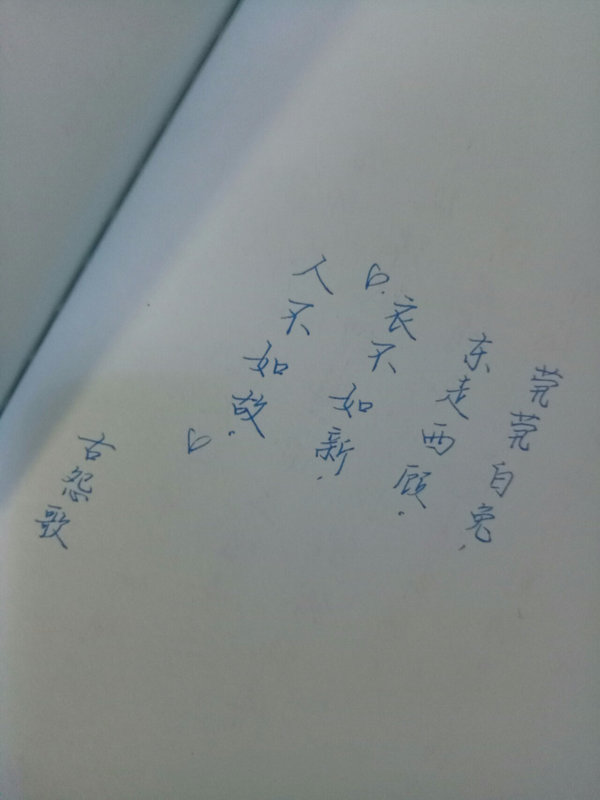 茕茕白兔,
东走西顾.
衣不如新.
人不如故.
古怨歌